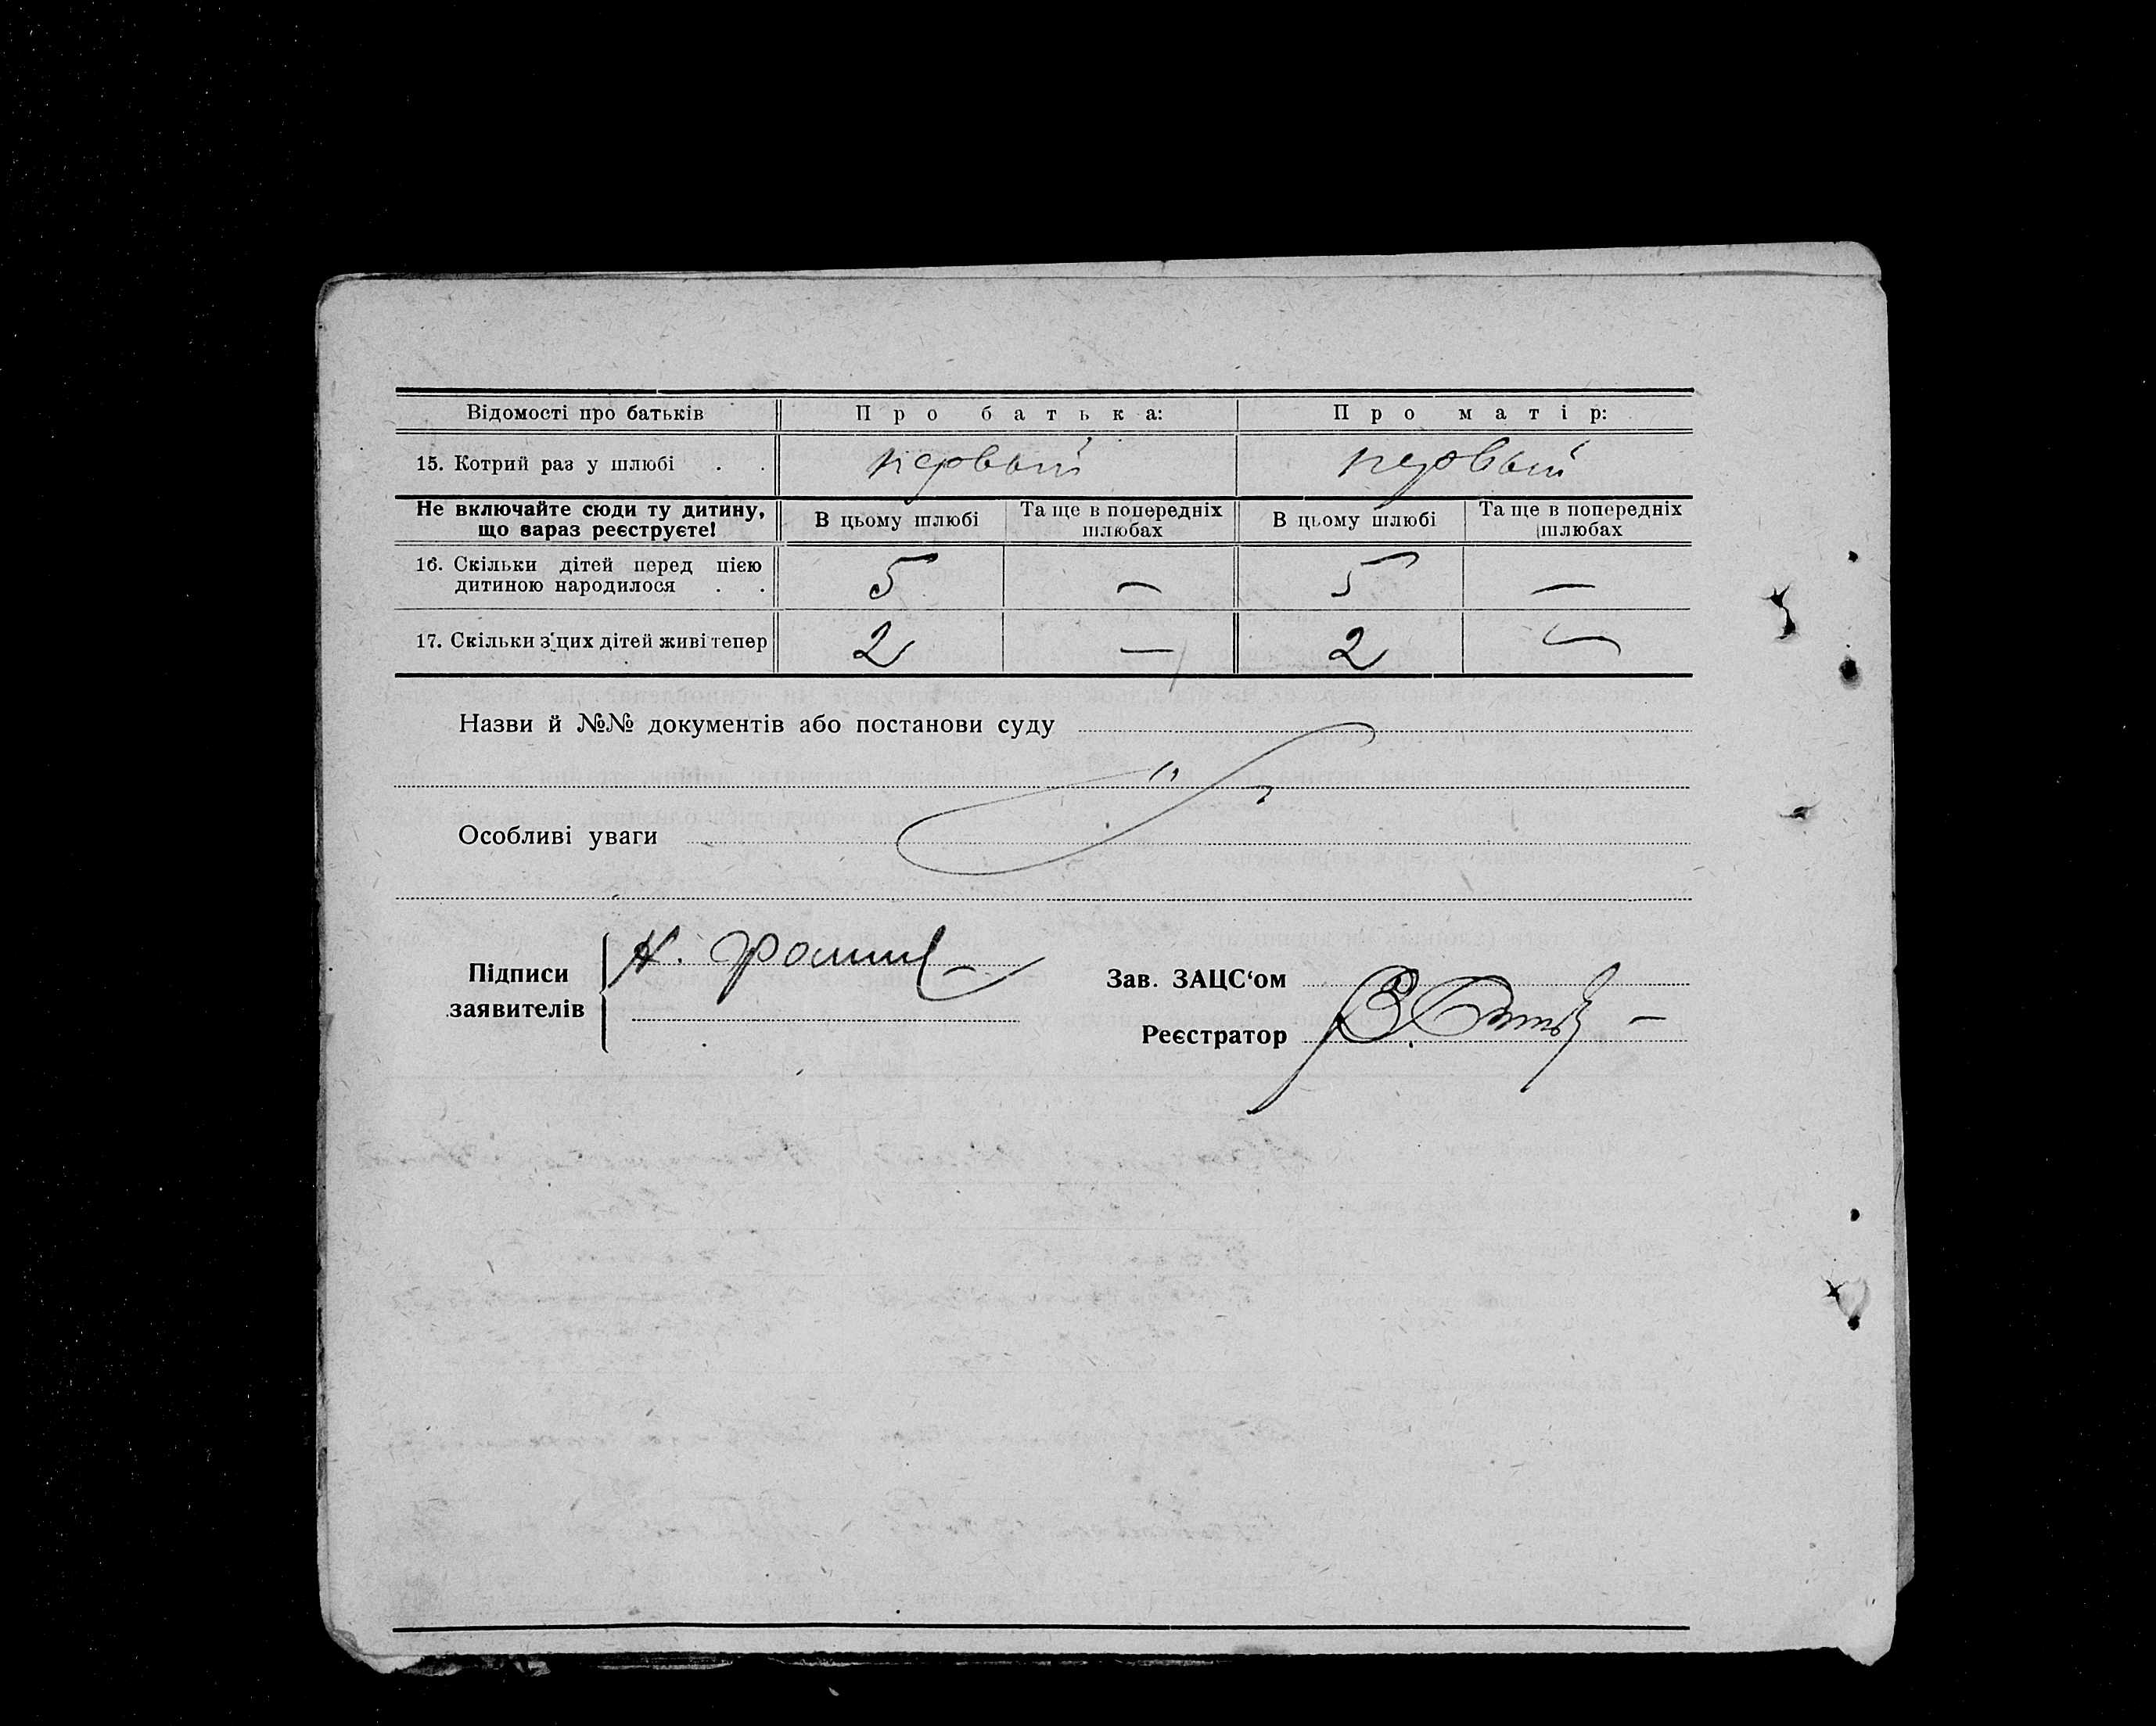 Відомості про батьків Про батька: Про матір:
15. Котрий раз у шлюбі . . первый первый
Не включайте сюди ту дитину, що зараз реєструєте! В цьому шлюбі Та ще в попередніх шлюбах В цьому шлюбі Та ще в попередніх шлюбах
16. Скільки дітей перед цією дитиною народилося . . 5 — 5 —
17. Скільки з цих дітей живі тепер 2 — 2 —
Назви й №№ документів або постанови суду
Особливі уваги
Підписи заявителів
Зав. ЗАЦС‘ом
Реєстратор